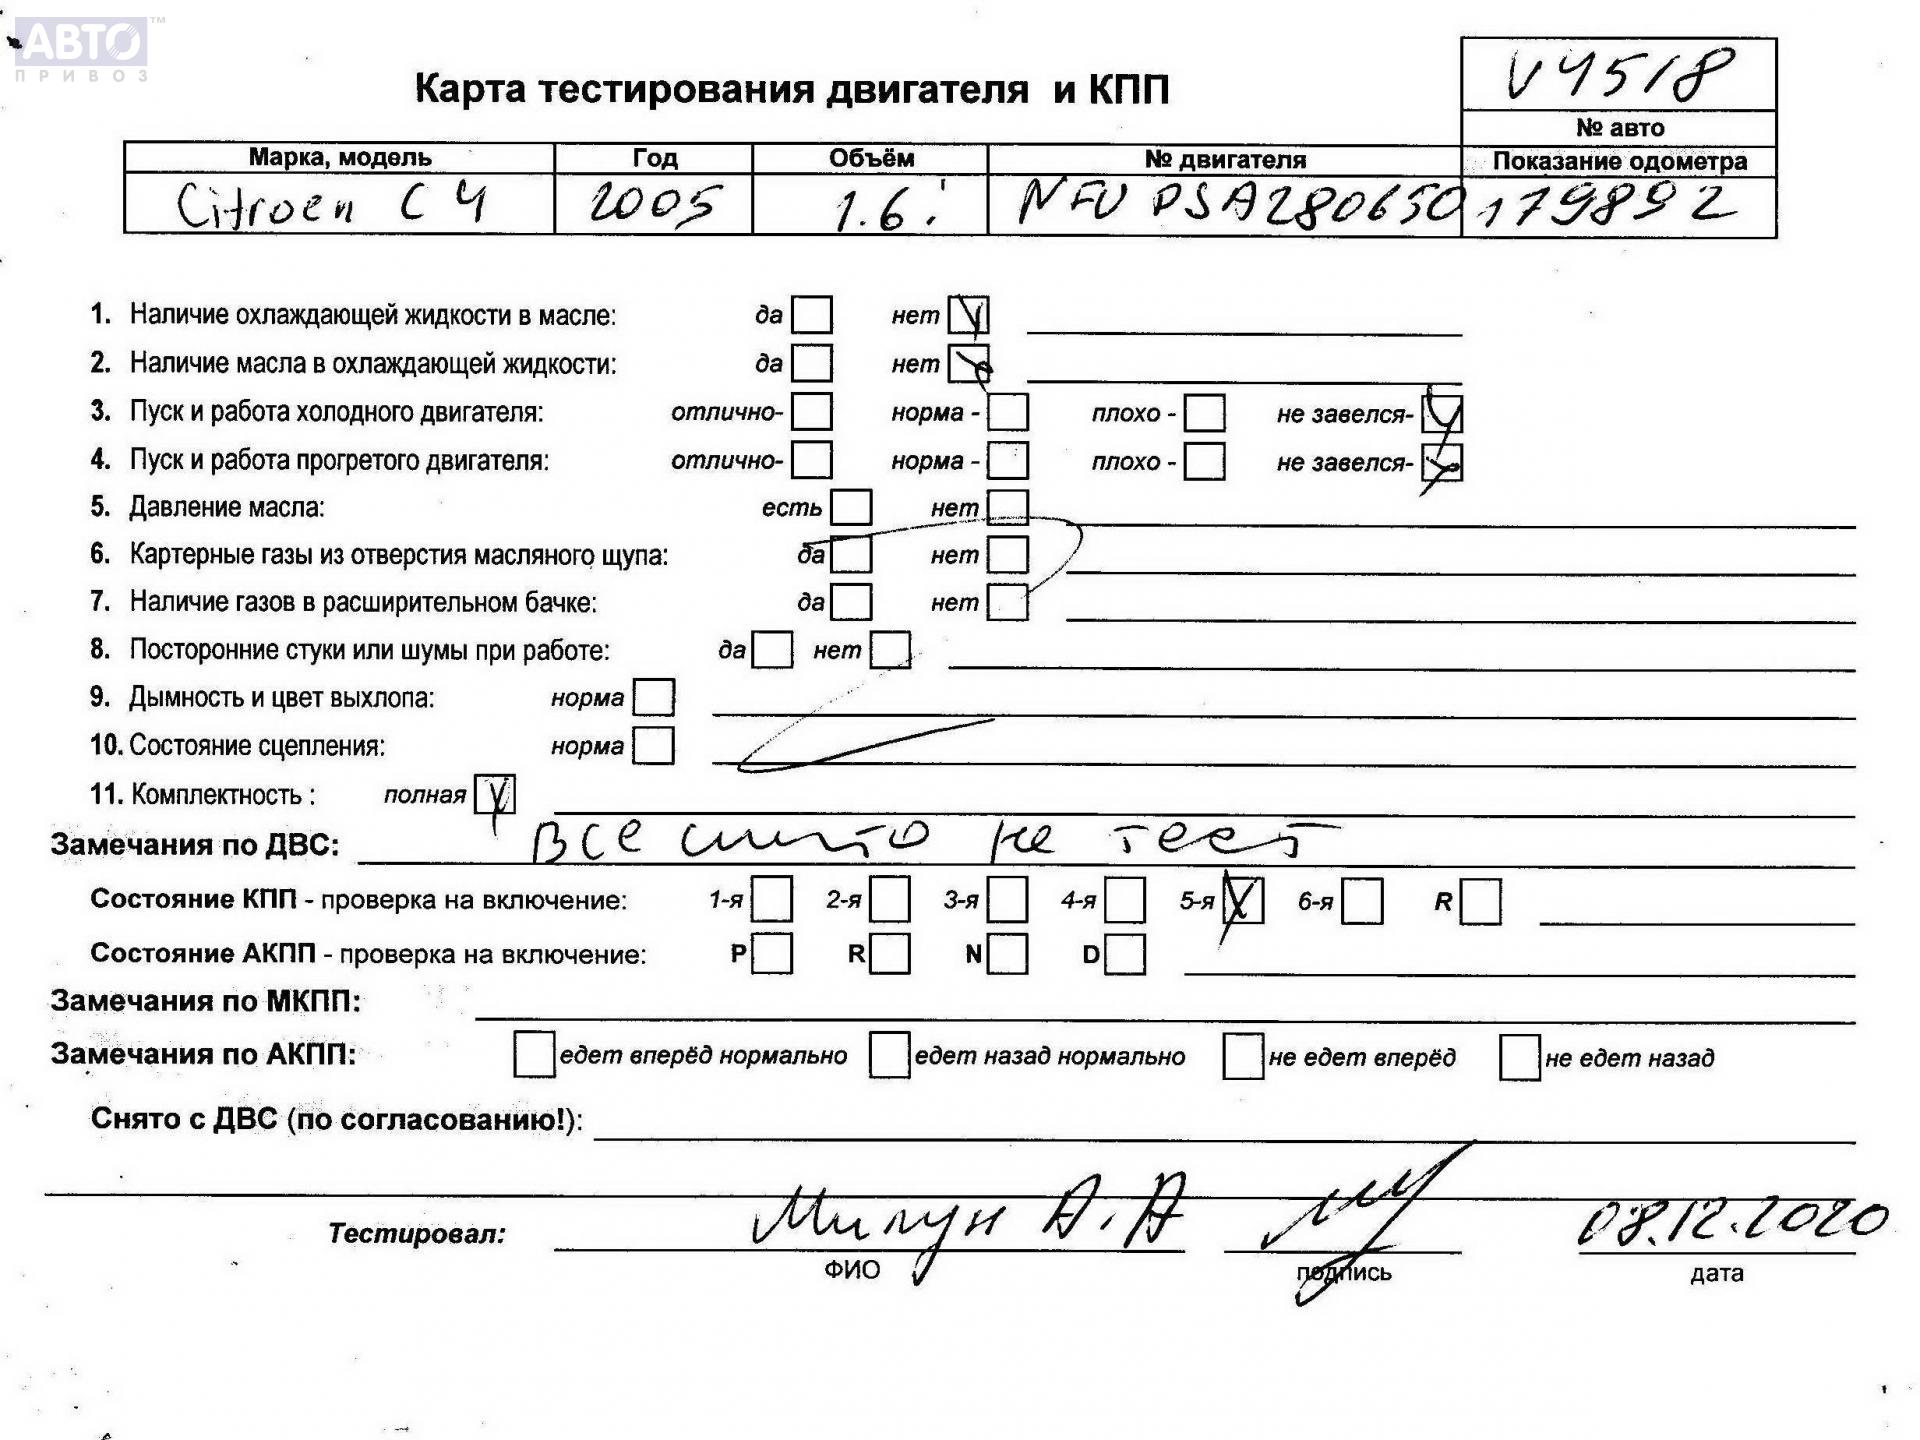 АВТО™
ПРИВОЗ
V4518
Карта тестирования двигателя и КПП
№ авто
Марка, модель Год Объём № двигателя Показание одометра
Citroen C4 2005 1.6i NFU PSA280650 179892
1. Наличие охлаждающей жидкости в масле: да нет
2. Наличие масла в охлаждающей жидкости: да нет
3. Пуск и работа холодного двигателя: отлично- норма - плохо - не завелся-
4. Пуск и работа прогретого двигателя: отлично- норма - плохо - не завелся-
5. Давление масла: есть нет
6. Картерные газы из отверстия масляного щупа: да нет
7. Наличие газов в расширительном бачке: да нет
8. Посторонние стуки или шумы при работе: да нет
9. Дымность и цвет выхлопа: норма
10. Состояние сцепления: норма
11. Комплектность : полная
Замечания по ДВС: Все снято не тест
Состояние КПП - проверка на включение: 1-я 2-я 3-я 4-я 5-я 6-я R
Состояние АКПП - проверка на включение: P R N D
Замечания по МКПП:
Замечания по АКПП: едет вперёд нормально едет назад нормально не едет вперёд не едет назад
Снято с ДВС (по согласованию!):
Тестировал: Милун А.А 08.12.2020
ФИО подпись дата